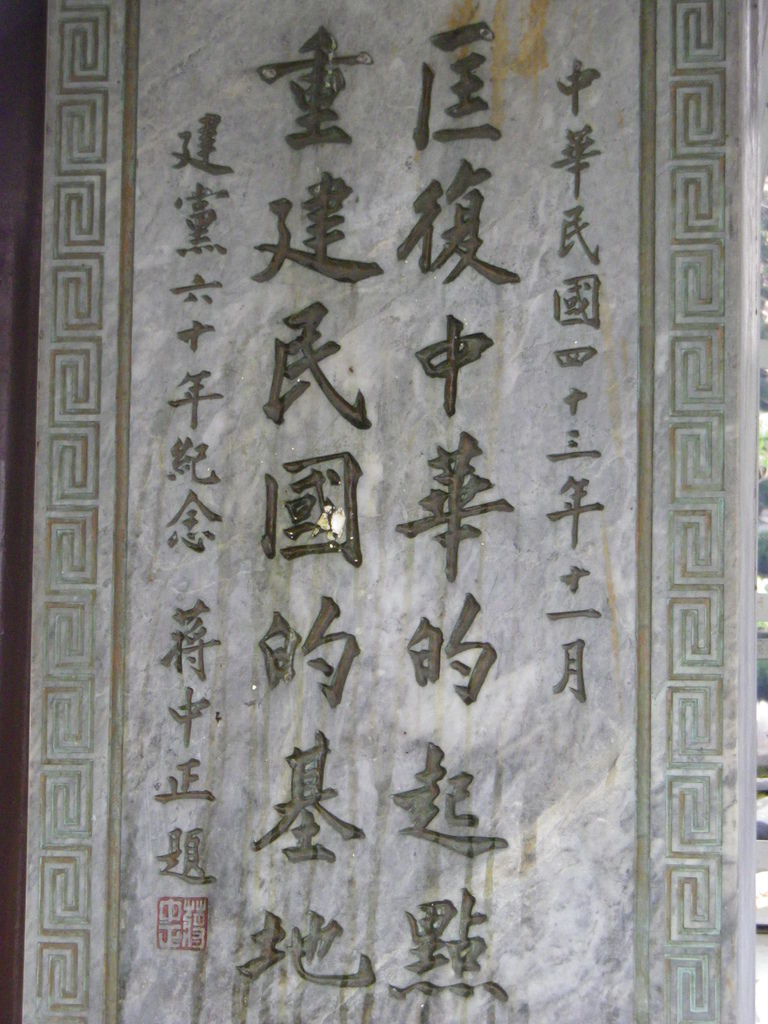 中華民國四十三年十一月
匡復中華的起點
重建民國的基地
建黨六十年紀念 蔣中正題
蔣中正印